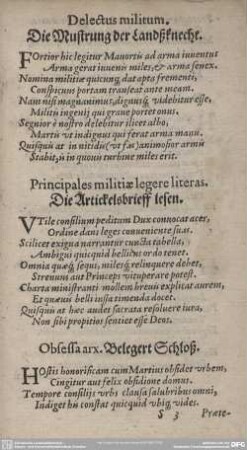 Delectus militum.
Die Mustrung der Landßknecht.
FOrtior hic legitur Mavortis ad arma iuventus
Arma gerat iuveni miles, & arma senex.
Nomina militiæ quicunq; dat apta frementi,
Conspicuus portam transeat ante meam.
Nam nisi magnanimus, dignusq; videbitur esse,
Militis ingenij qui grave portet onus.
Segnior è nostro delebitur ilicet albo,
Martis ut indignus qui ferat arma manu.
Quisquis at in nitidis (ut fas) animosior armis
Stabit, is in quovis turbine miles erit.
Principales militiæ legere literas.
Die Artickelsbrieff lesen.
VTile consilium peditum Dux convocat aces,
Ordine dans leges conveniente suas.
Scilicet exigua narrantur cuncta tabella,
Ambigui quicquid bellicus ordo tenet.
Omnia quæq; sequi, milesq; relinquere debet,
Strenuus aut Princeps vituperare potest.
Charta ministranti mollem brevis explicat aurem,
Et quævis belli iussa timenda docet.
Quisquis at hæc audet sacrata resolvere iura,
Non sibi propitios sentiet esse Deos.
Obsessa arx. Belegert Schloß.
HOstis honorificam cum Martius obsidet urbem,
Cingitur aut felix obsidione domus.
Tempore consilijs urbs clausa salubribus omni,
Indiget his constans quicquid ubiq; vides.
S 3 Præte-